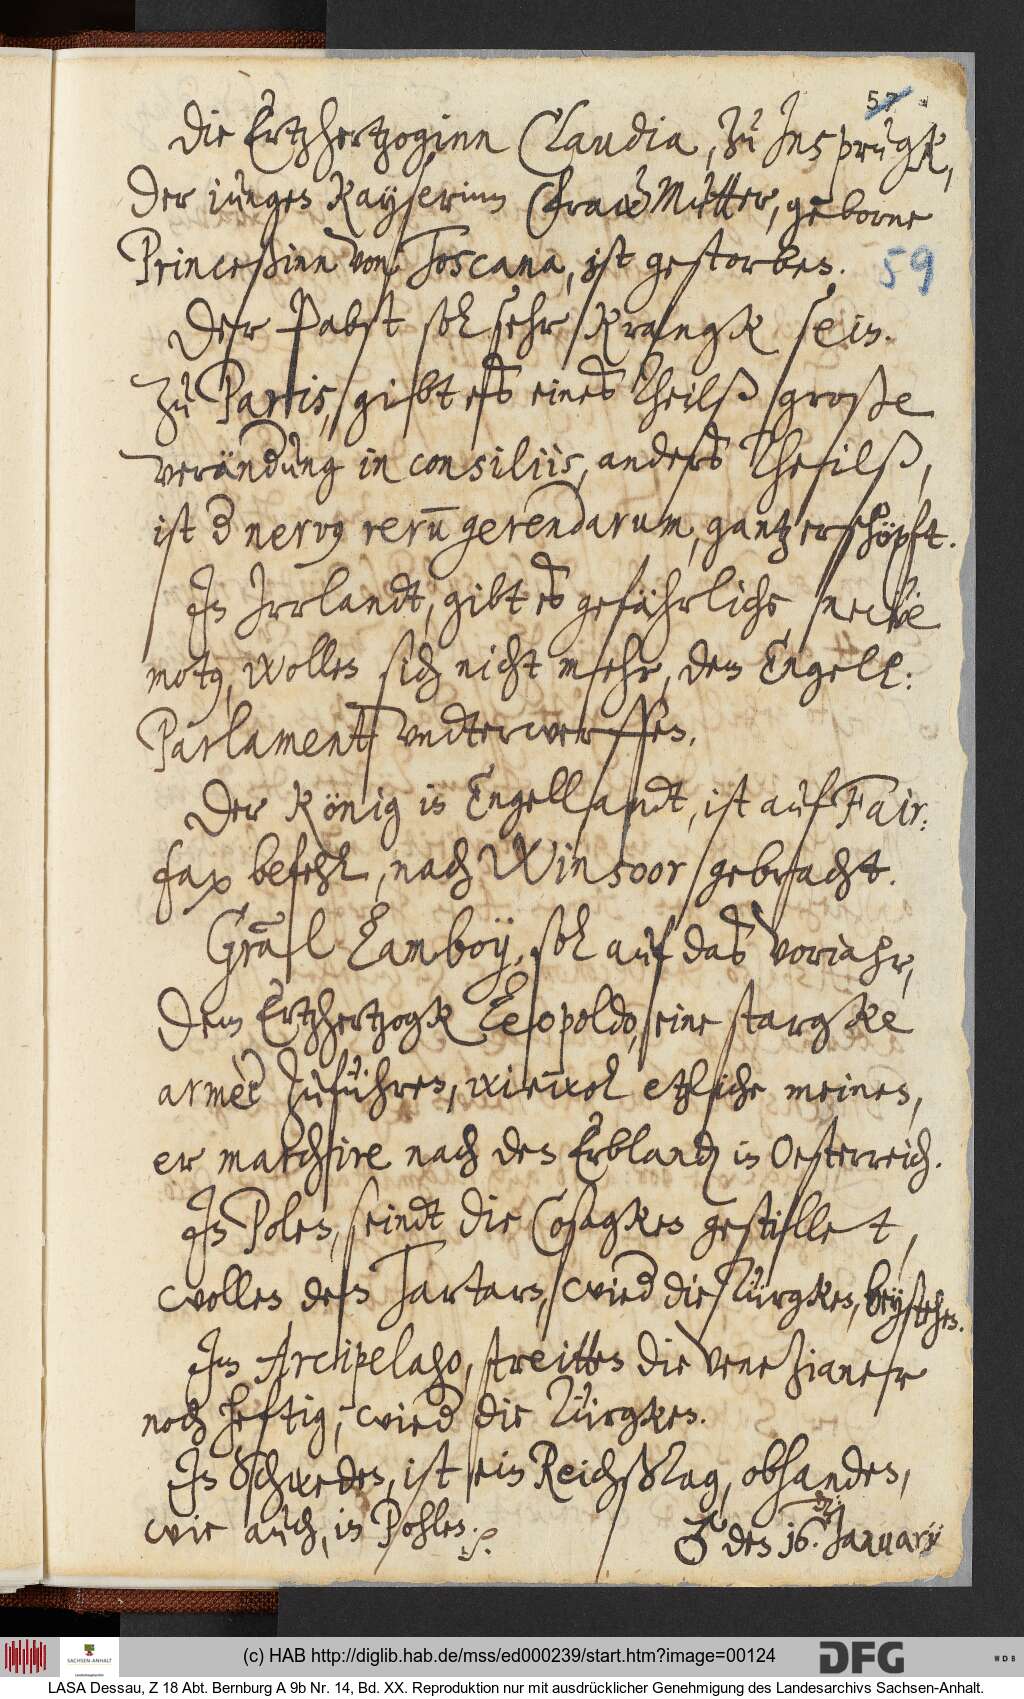 57
Die Ertzhertzoginn Claudia, zu Insprugk,
der iungen Kayserinn Fraw Mutter, geborne
Princeßinn von Toscana, ist gestorben.
59
Der Pabst sol sehr krangk sein.
Zu Paris, gibt es eines theilß große
verändung in consiliis, anders theilß,
ist d nervus rerū gerendarum, gantz erschöpft.
In Irrlandt, gibt es gefährliche newe
motus, wollen sich nicht mehr, dem Engell:
Parlament vndterwerffen.
Der König in Engellandt, ist auf Fair:
fax befehl, nach Winsoor gebracht.
Graf Lamboÿ, sol auf das vorjahr,
dem Ertzhertzogk Leopoldo, eine stargke
armèe zuführen, wiewol etzliche meinen,
er marchire nach den Erblanden in Oesterreich.
In Polen, seindt die Cosagken gestillet,
wollen den Tartarn, wied die Türgken, beÿstehen.
Im Archipelago, streitten die Venezianer
noch heftig, wied die Türgken.
In Schweden, ist ein Reichßtag, obhanden,
wie auch, in Pohlen.
♂ den 16. January
(c) HAB http://diglib.hab.de/mss/ed000239/start.htm?image=00124
SACHSEN-ANHALT
DFG
WDB
LASA Dessau, Z 18 Abt. Bernburg A 9b Nr. 14, Bd. XX. Reproduktion nur mit ausdrücklicher Genehmigung des Landesarchivs Sachsen-Anhalt.